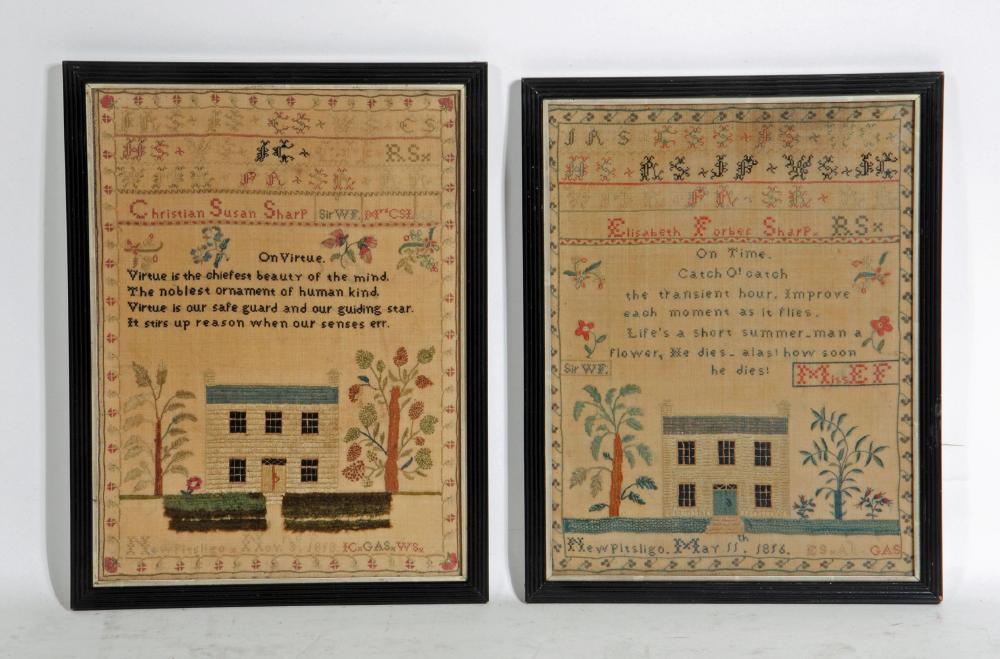 IC
RS
PA
Christian Susan Sharp Sir WF. Mrs CSL
On Virtue.
Virtue is the chiefest beauty of the mind.
The noblest ornament of human kind.
Virtue is our safe guard and our guiding star.
It stirs up reason when our senses err.
New Pitsligo IC GAS WS
IAS
HS AS IF WS IC
PA SL
Elisabeth Forbes Sharp RS
On Time.
Catch O! catch
the transient hour. Improve
each moment as it flies.
Life's a short summer_man a
flower, He dies_alas! how soon
Sir WF. he dies! Miss EF
New Pitsligo. May 11th, 1856. GAS